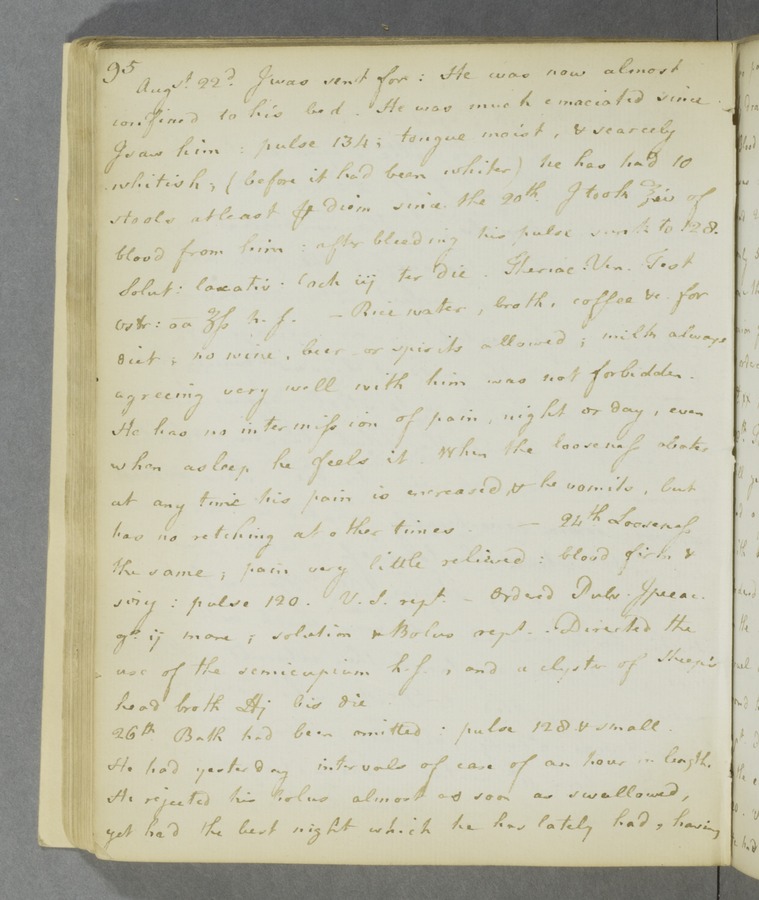 95
Augst. 22d. I was sent for: He was now almost
confined to his bed. He was much emaciated since
I saw him: pulse 134; tongue moist, & scarcely
whitish; (before it had been whiter) he has had 10
stools at least diem since the 20th. I took ℥xiv of
blood from him: after bleeding his pulse sunk to 128.
Solut: laxativ: Coch iij ter die. Theriac: Ven. Test
ostr: aa ʒß h. s. — Rice water, broth, coffee &c. for
diet; no wine, beer or spirits allowed; milk always
agreeing very well with him was not forbidden.
He has no intermission of pain, night or day, even
when asleep he feels it. When the looseness abates
at any time his pain is encreased, & he vomits, but
has no retching at other times — 24th Looseness
the same; pain very little relieved: blood firm &
sizy: pulse 120. V.S. rept. — Ordered Pulv. Ipecac.
gr ij mane; solution & Bolus rept. Directed the
use of the semicupium h. s., and a clyster of Sheep's
head broth ℔j bis die
26th Bath had been omitted: pulse 128 & small.
He had yesterday intervals of ease of an hour in length.
He rejected his bolus almost as soon as swallowed,
yet had the best night which he has lately had, having